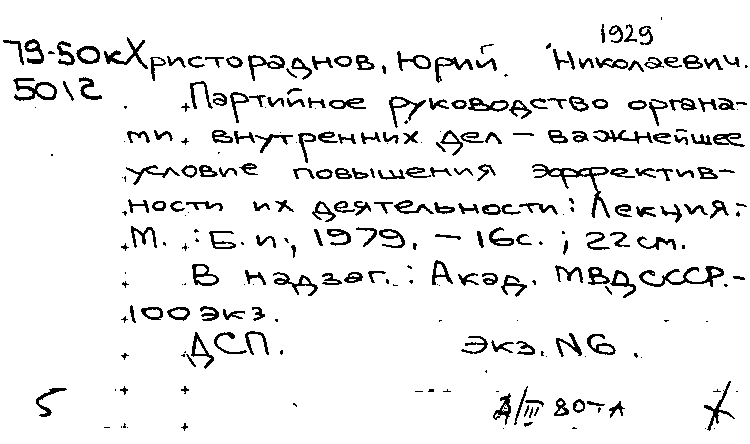 1929
79-50к Христораднов, Юрий Николаевич.
5012 Партийное руководство органа-
ми внутренних дел – важнейшее
условие повышения эффектив-
ности их деятельности: Лекция.-
М. : Б.и., 1979. – 16с. ; 22см.
В надзаг.: Акад. МВД СССР.-
100экз.
ДСП. Экз. N6.
5 /III 80